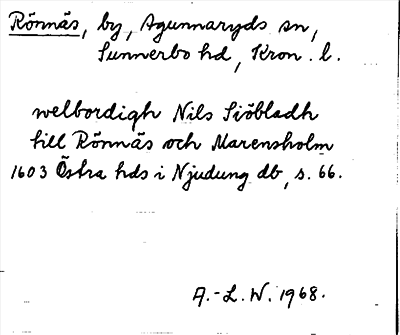 Rönnäs, by, Agunnaryds sn,
Sunnerbo hd, Kron. l.
welbordigh Nils Siöbladh
till Rönnäs och Marensholm
1603 Östra hds i Njudung db, s. 66.
A.-L. W. 1968.